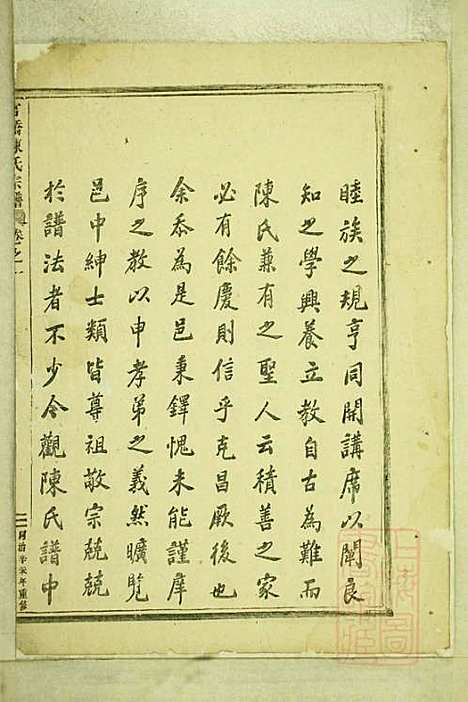 睦族之規亨同開講席以闡良
知之學興養立教自古為難而
陳氏兼有之聖人云積善之家
必有餘慶則信乎克昌厥後也
余忝為是邑秉鐸愧未能謹庠
序之教以申孝弟之義然曠覽
邑中紳士類皆尊祖敬宗兢兢
於譜法者不少今觀陳氏譜中
陳氏宗譜 卷之一
同治辛未年重修